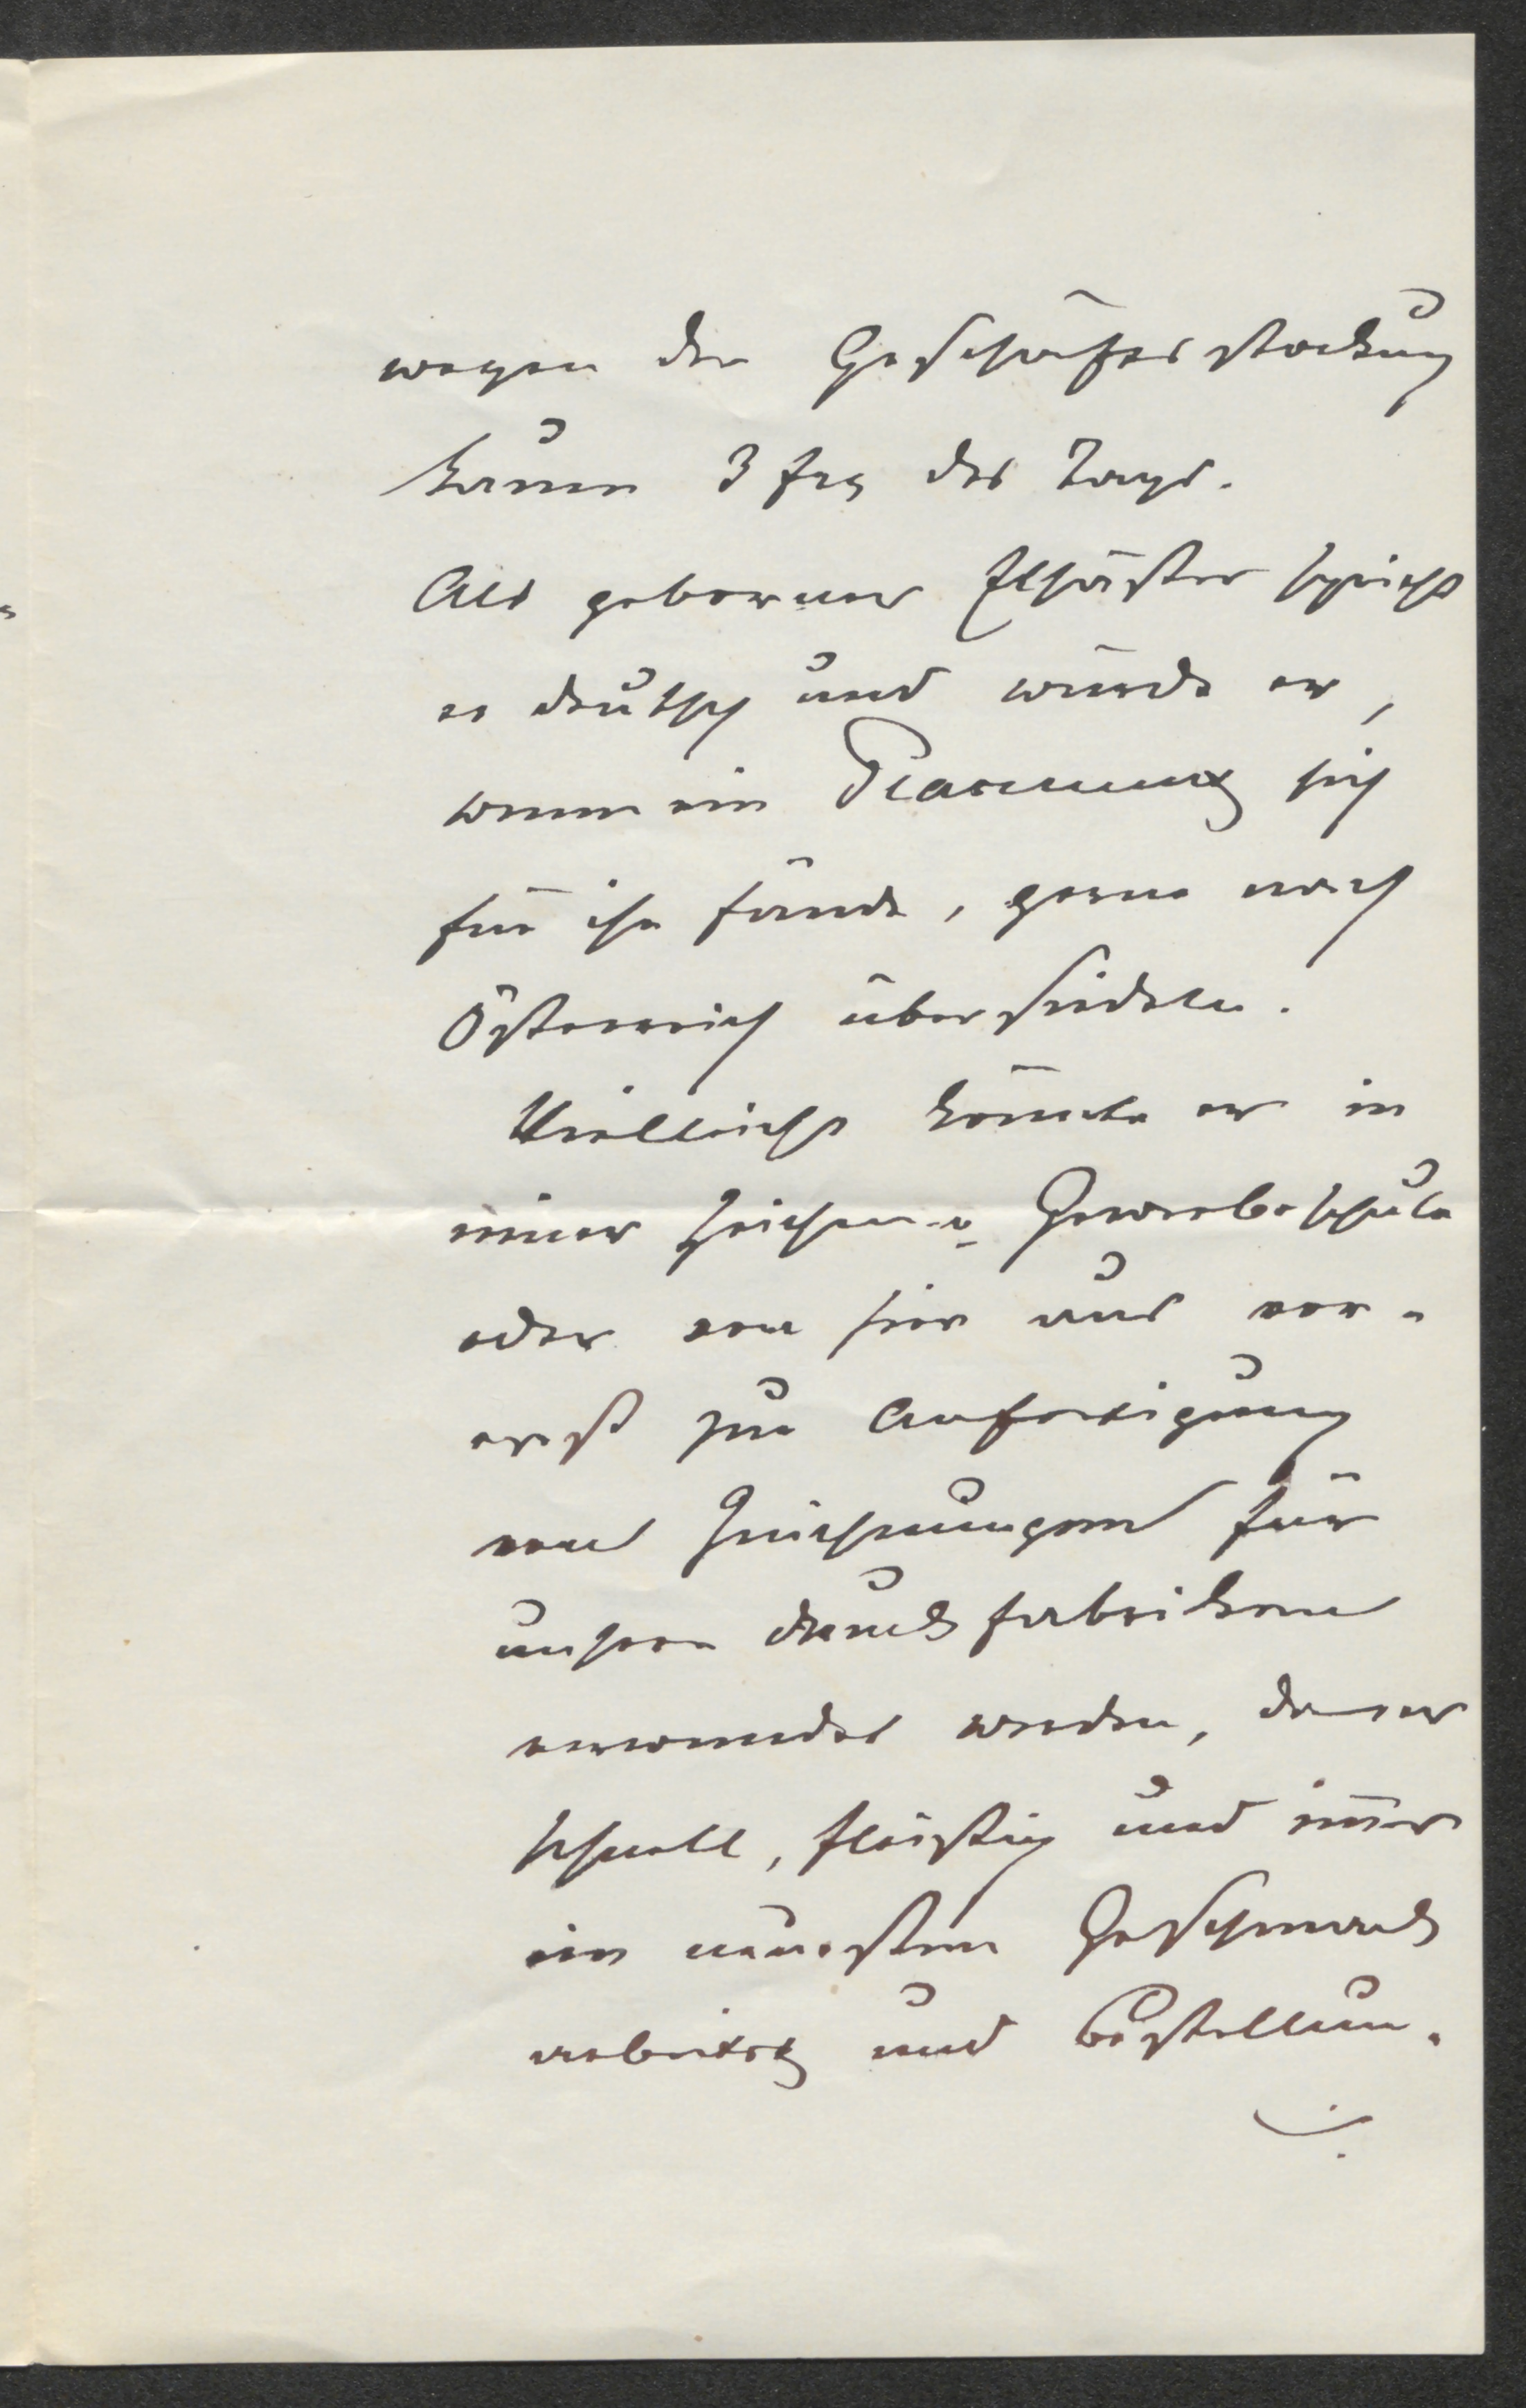 wegen der Geschäftsstockung
kaum 3 frs des Tags.
Als geborner Elsäßer spricht
er deutsch und würde er,
wenn ein Placement sich
für ihn fände, gerne nach
Österreich übersiedeln.
Vielleicht könnte er in
einer Zeichen- u. Gewerbeschule
oder von hier aus vor-
erst zur Anfertigung
von Zeichnungen für
unsere Druckfabriken
verwendet werden, da er
schnell, fleißig und im̄er
im neuesten Geschmack
arbeitet und Bestellun-
./.